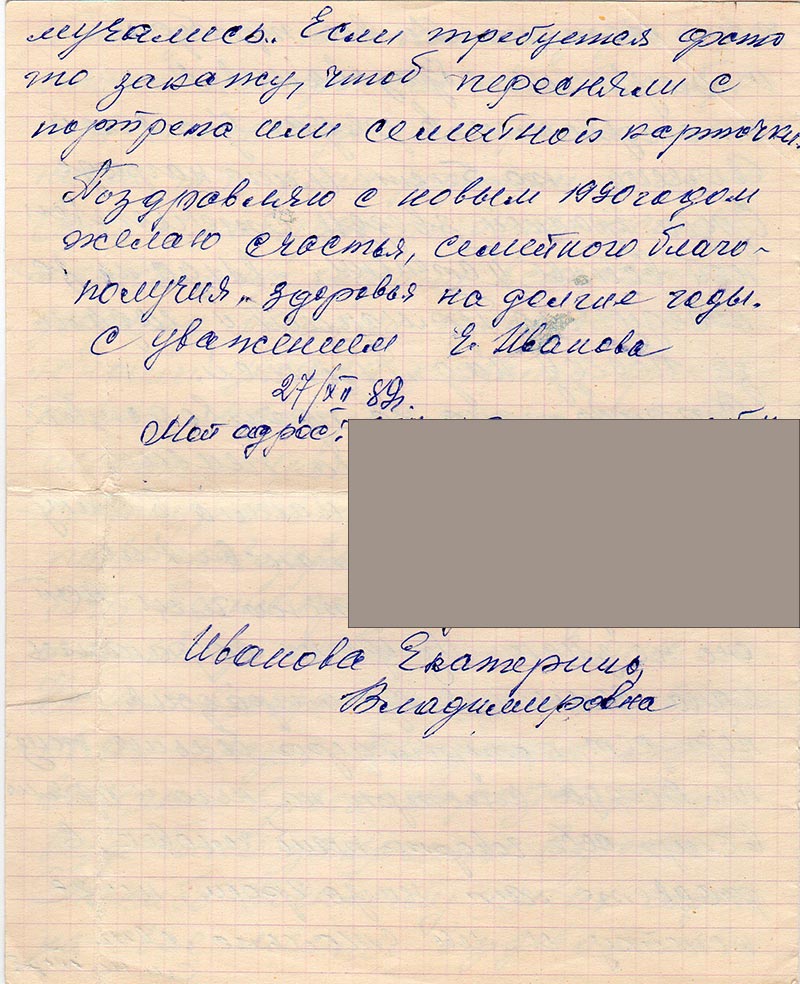 мучались. Если требуется фото
то закажу, чтоб пересняли с
портрета или семейной карточки.
Поздравляю с новым 1990 годом
желаю счастья, семейного благо-
получия, здоровья на долгие годы.
С уважением Е. Иванова
27/XII 89г.
Мой адрес:
Иванова Екатерина
Владимировна